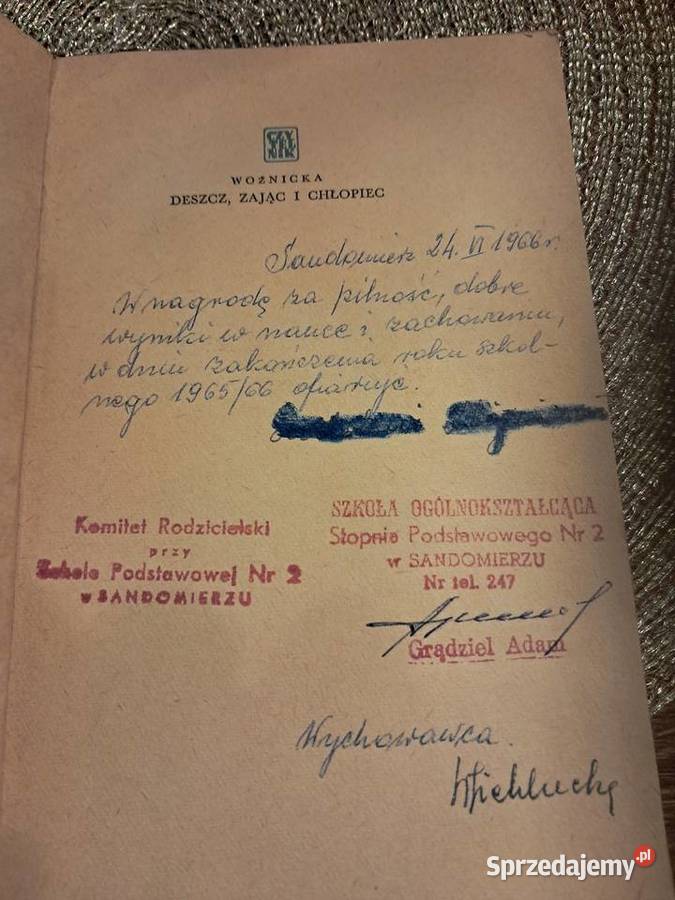 CZY
TEL
NIK
WOŹNICKA
DESZCZ, ZAJĄC I CHŁOPIEC
Sandomierz 24. VI 1966 r.
W nagrodę za pilność, dobre
wyniki w nauce i zachowaniu,
w dniu zakończenia roku szkol-
nego 1965/66 ofiaruje.
Komitet Rodzicielski
przy
Szkole Podstawowej Nr 2
w SANDOMIERZU
SZKOŁA OGÓLNOKSZTAŁCĄCA
Stopnia Podstawowego Nr 2
w SANDOMIERZU
Nr tel. 247
Grądziel Adam
Wychowawca.
Sprzedajemy.pl